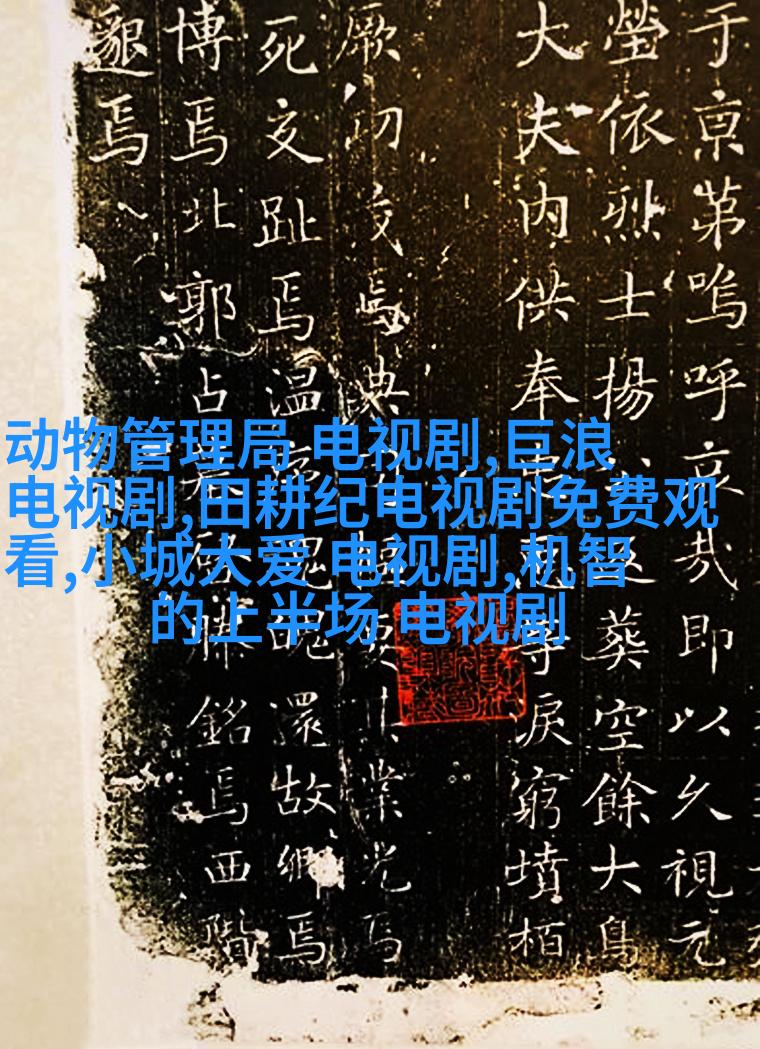 动物管理局 电视剧,巨浪
电视剧,田耕纪电视剧免费观
看,小城大爱 电视剧,机智
的上半场 电视剧
于京第嗚呼哀哉即以久視元
瑩依烈士揚葬空餘大鳥
大夫内供奉尋淚窮墳栢
厥功茂焉典業光焉
死交趾焉温魂魄還故鄉焉
博焉北郭占銘焉西階
邈焉